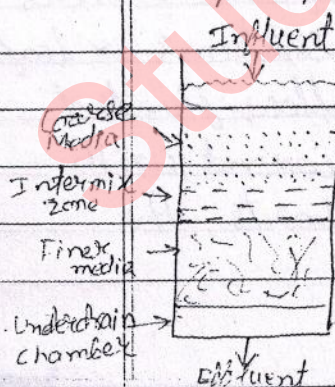 Influent
Coarse
Media
Intermix
zone
Finer
media
Underdrain
chamber
Effluent
Stu